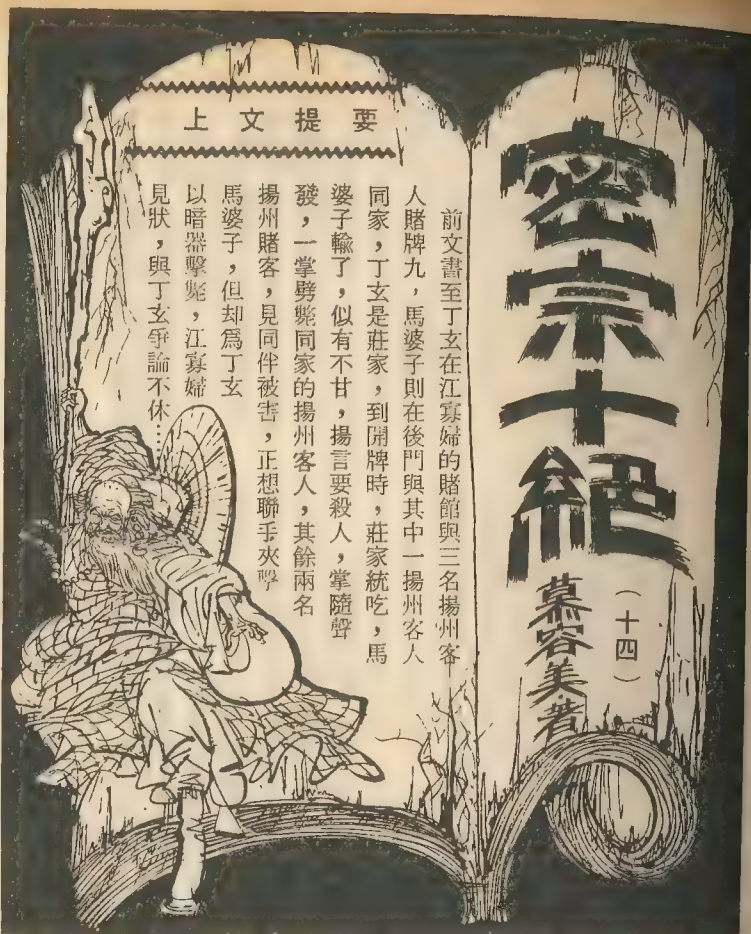 密宗十絕
(十四)
慕容美著
上文提要
前文書至丁玄在江寡婦的賭館與三名揚州客
人賭牌九,馬婆子則在後門與其中一揚州客人
同家,丁玄是莊家,到開牌時,莊家統吃,馬
婆子輸了,似有不甘,揚言要殺人,掌隨聲
發,一掌劈斃同家的揚州客人,其餘兩名
揚州賭客,見同伴被害,正想聯手夾擊
馬婆子,但却為丁玄
以暗器擊斃,江寡婦
見狀,與丁玄爭論不休……